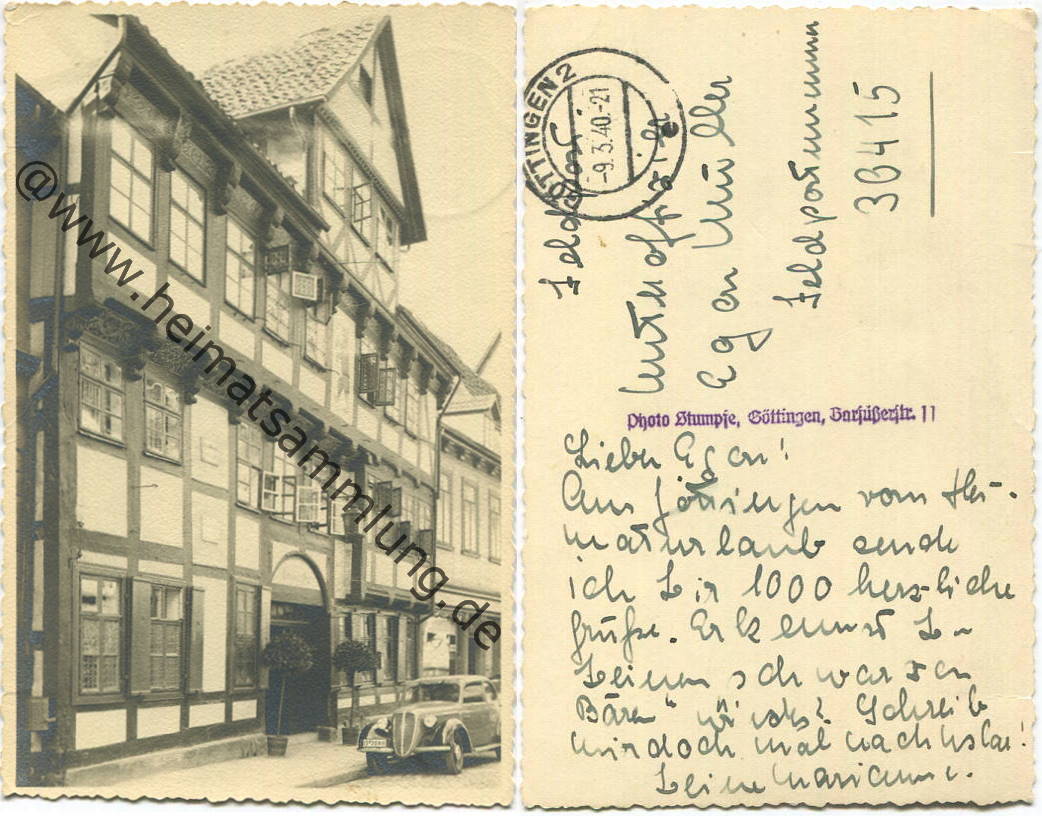 @www.heimatsammlung.de
GÖTTINGEN 2
-9.3.40.-21
Feldpost
Unteroffizier
Egon Müller
Feldpostnummer
36415
Photo Stumpfe, Göttingen, Barfüßerstr. 11
Lieber Egon!
Aus Göttingen vom Hei-
maturlaub sende
ich Dir 1000 herzliche
Grüße. Erkennst Du
Deinen schwarzen
Bären" wieder? Schreib
mir doch mal nach
Deine Marianne.